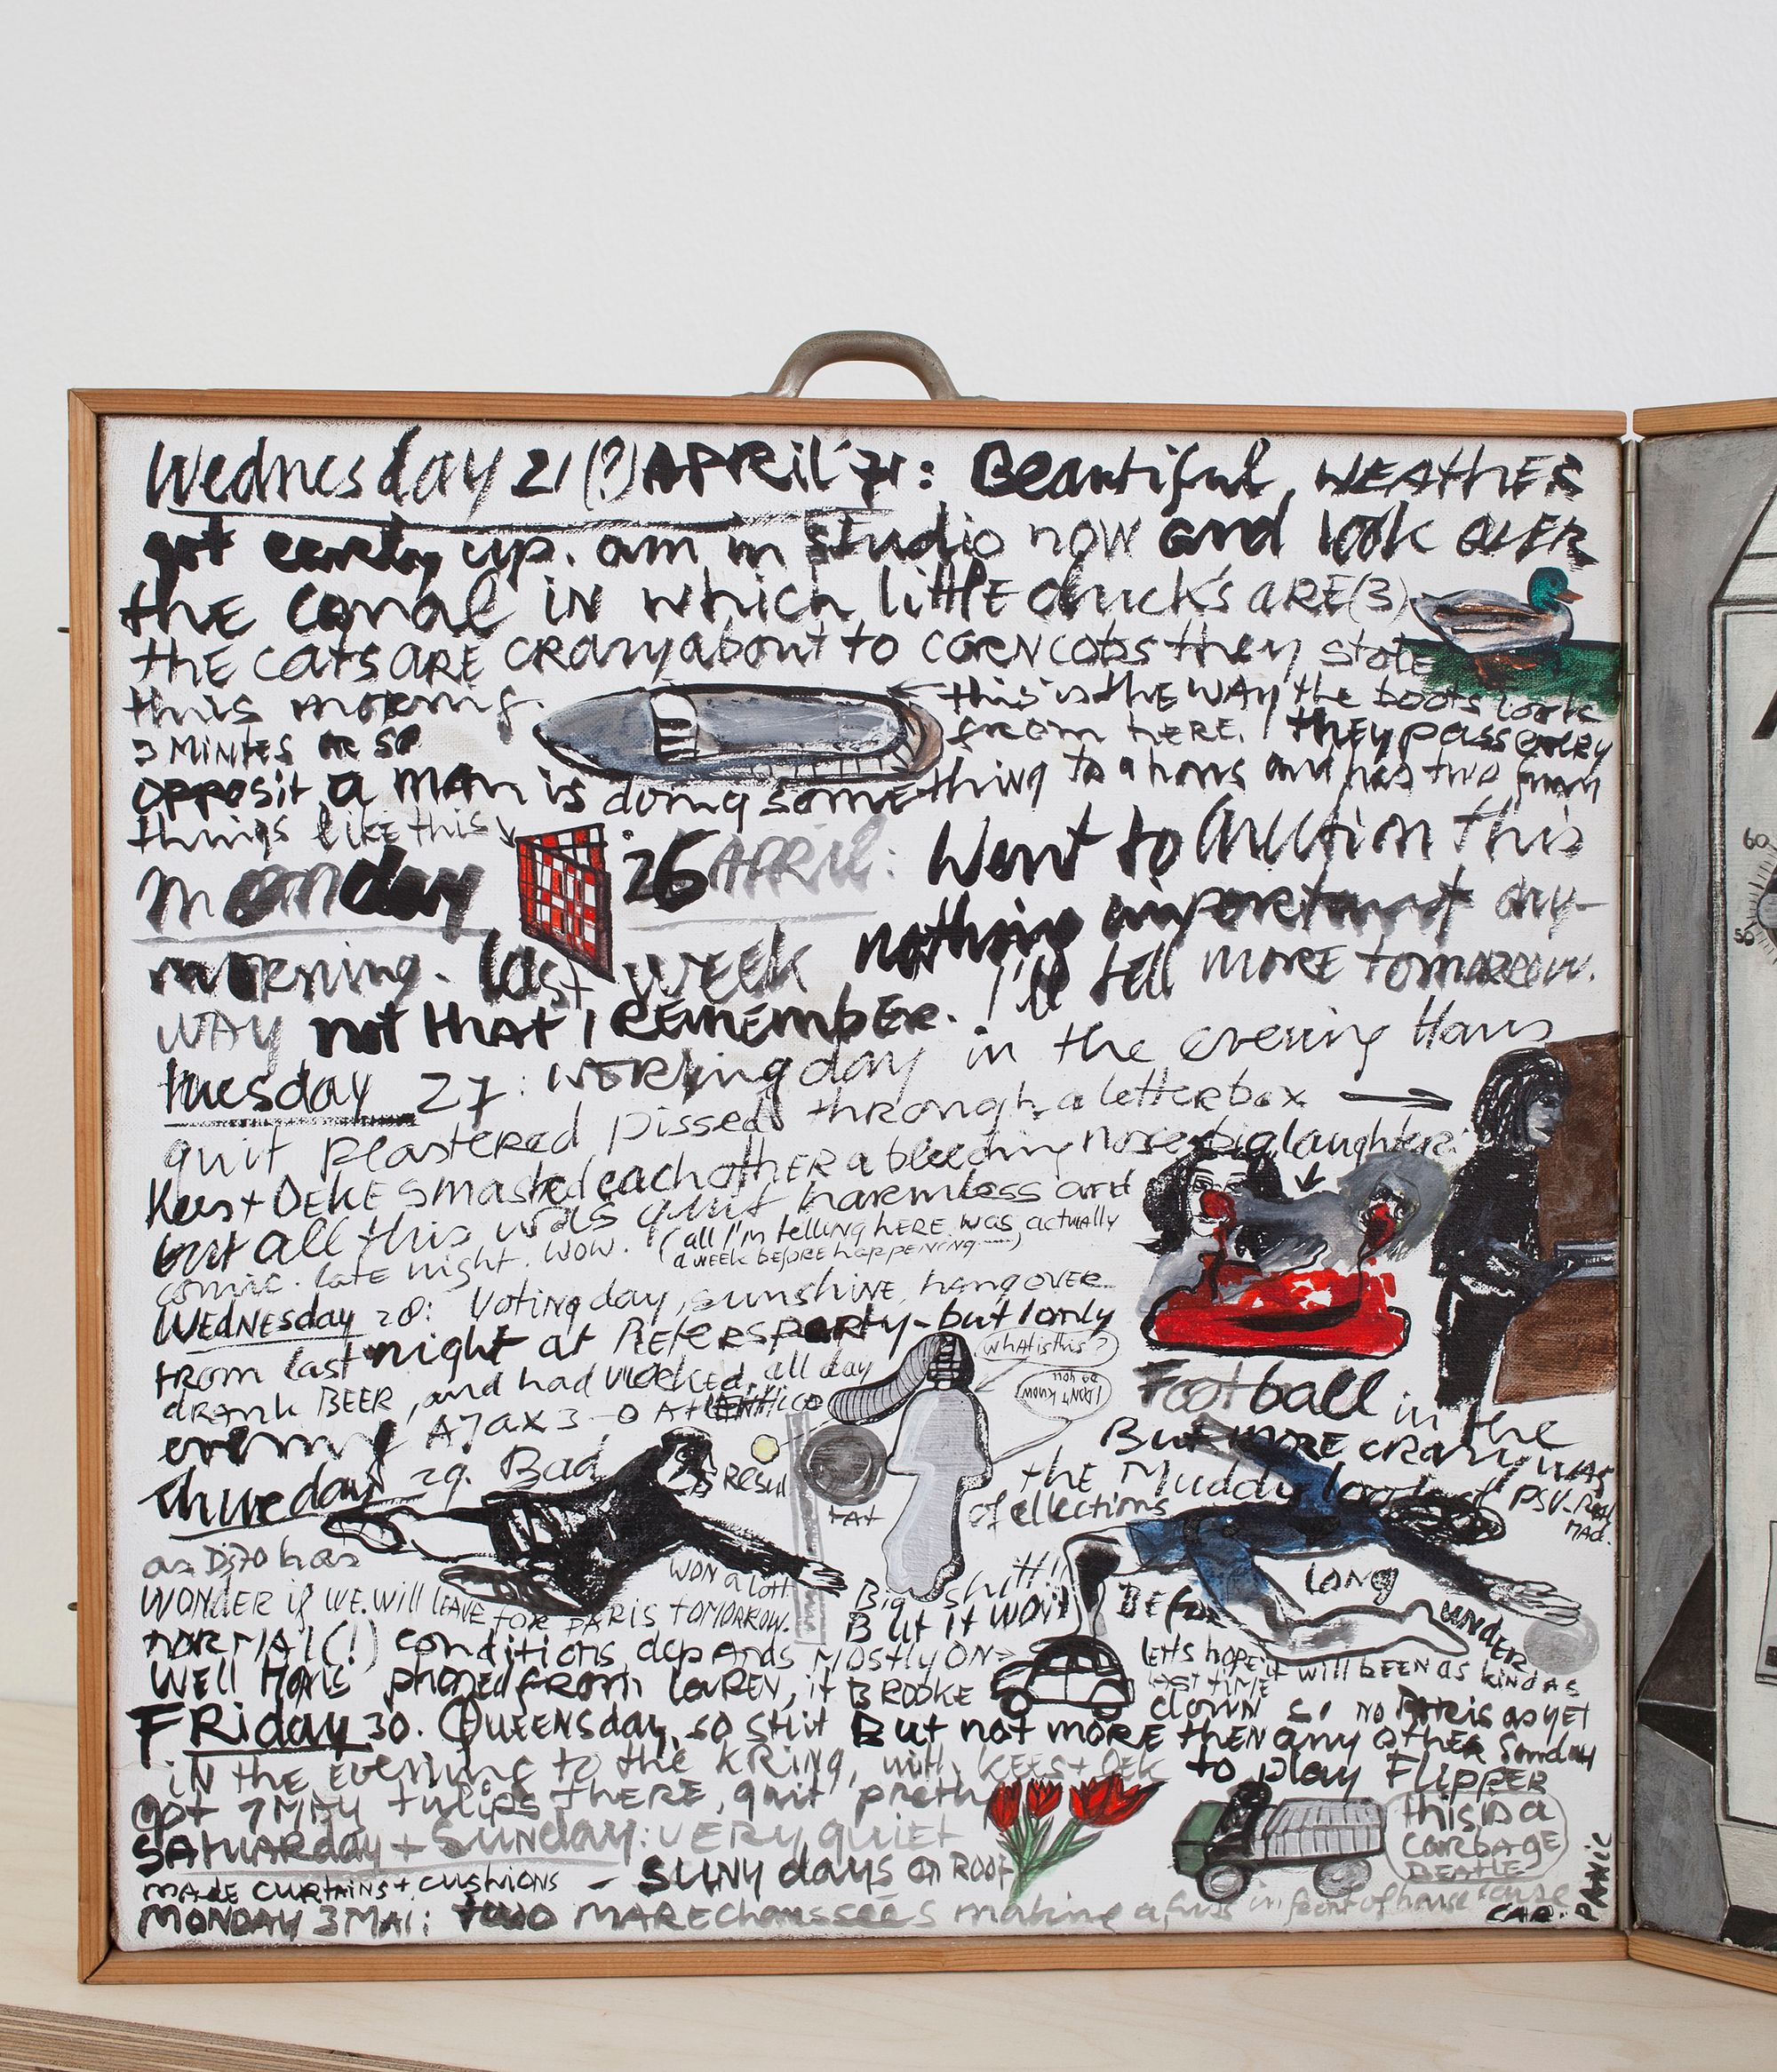 Wednesday 21(?) APRIL '71: Beautiful WEATHER
got early up. am in studio now and look OVER
the canal in which little ducks ARE (3)
the cats ARE crazy about to CORNcobs they stole
this morning.
this is the WAY the boots look
from here. they pass every
3 MiNtES OR SO
opposit a man is doing something to a hous and has two
things like this
monday 26 APRIL: Went to Auction this
morning. last week nothing important any-
WAY not that I REMEMBER. I'll tell MORE tomorrow.
tuesday 27: WORKing day in the evening Hans
quit plastered pissed through a letterbox
Kees + DEKE smashed each other a bleeding nose big laughter
but all this was quit harmless and
comic. late night. WOW. (all I'm telling HERE was actually
a WEEK BEFORE happening)
WEDNESday 28: Voting day, sunshine, hangover
from last night at PETERS party - but I only
drank BEER, and had worked all day
whatisthis?
do you
I DON'T know
evening AJax 3-0 Atletico
Football in the
But MORE crazy was
PSV-Real
MAd.
Thursday 29. Bad RESUl
tat of ellections
the Muddy
as DJ70 has WON a lott
Big shitt!!
WONDER if WE. will leave for PARis tomorrow. But it WON't BEfor LONG
UNDER
NORMAl(!) conditions depands MOStly ON
Lets hope it will BEEN as kind as
LAST TIME
Well Hans phoned from LaREN, it BROOKE down so no PARis as yet
FRiday 30. QUEENSday, so shit But not more then any other Sunday
iN the evening to the KRING, with KEES + DEK to play Flipper
got 7 MAY tulips there, quit pretty
SATuARday + SUNday: VERY quiet
this is a
garbage
BEATLE
MADE CURtAiNS + cushions - SUNy days on ROOF
MONDAY 3 MAi: two MAREchaussees making a fuss in front of house 'cause
CAR.
PANiC
60
50